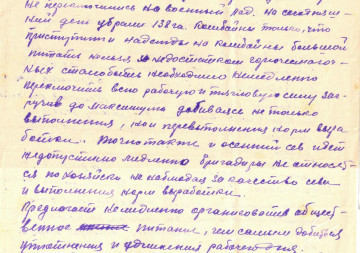 не переключились на военный лад. На сегодняш-
ний день убрали 138 га. Комбайны только, что
приступили и надежды на комбайны большой
питать нельзя за недостатком горючего
необходимо немедленно
переключить всю рабочую и тягловую силу заг-
рузив до максимума добиваясь не только
выполнения, но и перевыполнения норм выра-
ботки. Точно также и осенний сев идет
недопустимо медленно бригадиры не относят-
ся по хозяйски не наблюдая за качеством сева
и выполнения норм выработки.
Предлогаю немедленно организовать общест-
венное питание, тем самым добиться
уплотнения и удлинения рабочего дня.